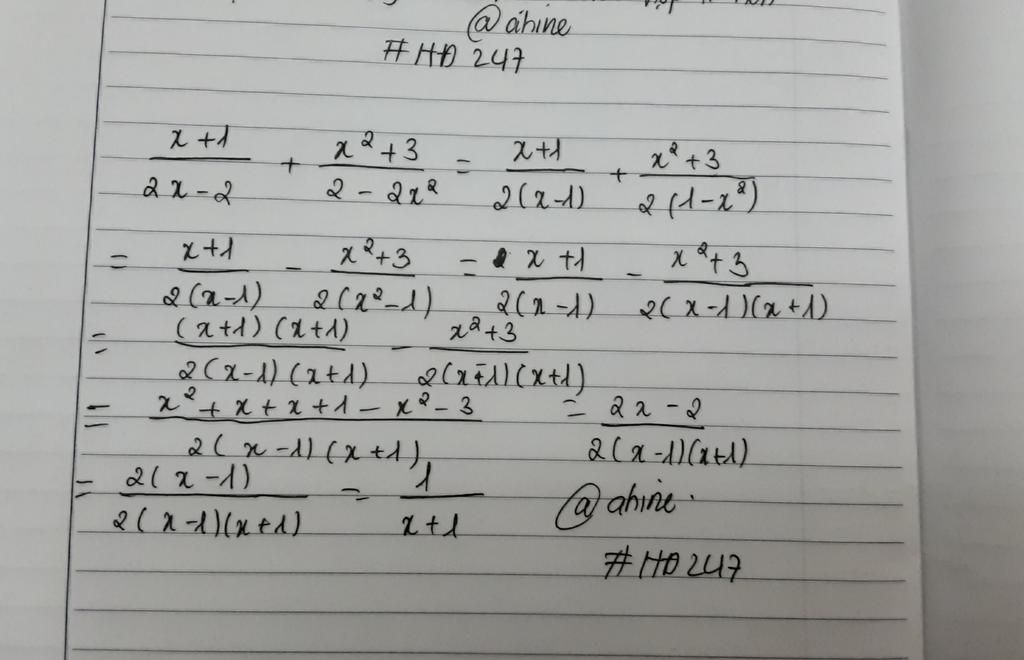 @ahine
#HD 247
x+1/2x-2 + x²+3/2-2x² = x+1/2(x-1) + x²+3/2(1-x²)
= x+1/2(x-1) - x²+3/2(x²-1) = x+1/2(x-1) - x²+3/2(x-1)(x+1)
= (x+1)(x+1)/2(x-1)(x+1) - x²+3/2(x-1)(x+1)
= x²+x+x+1-x²-3/2(x-1)(x+1) = 2x-2/2(x-1)(x+1)
= 2(x-1)/2(x-1)(x+1) = 1/x+1 @ahine.
#HD247